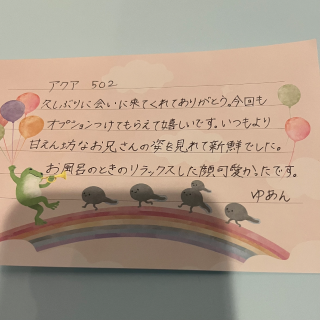 アクア 502
久しぶりに会いに来てくれてありがとう。今回も
オプションつけてもらえて嬉しいです。いつもより
甘えん坊なお兄さんの姿を見れて新鮮でした。
お風呂のときのリラックスした顔可愛かったです。
ゆあん